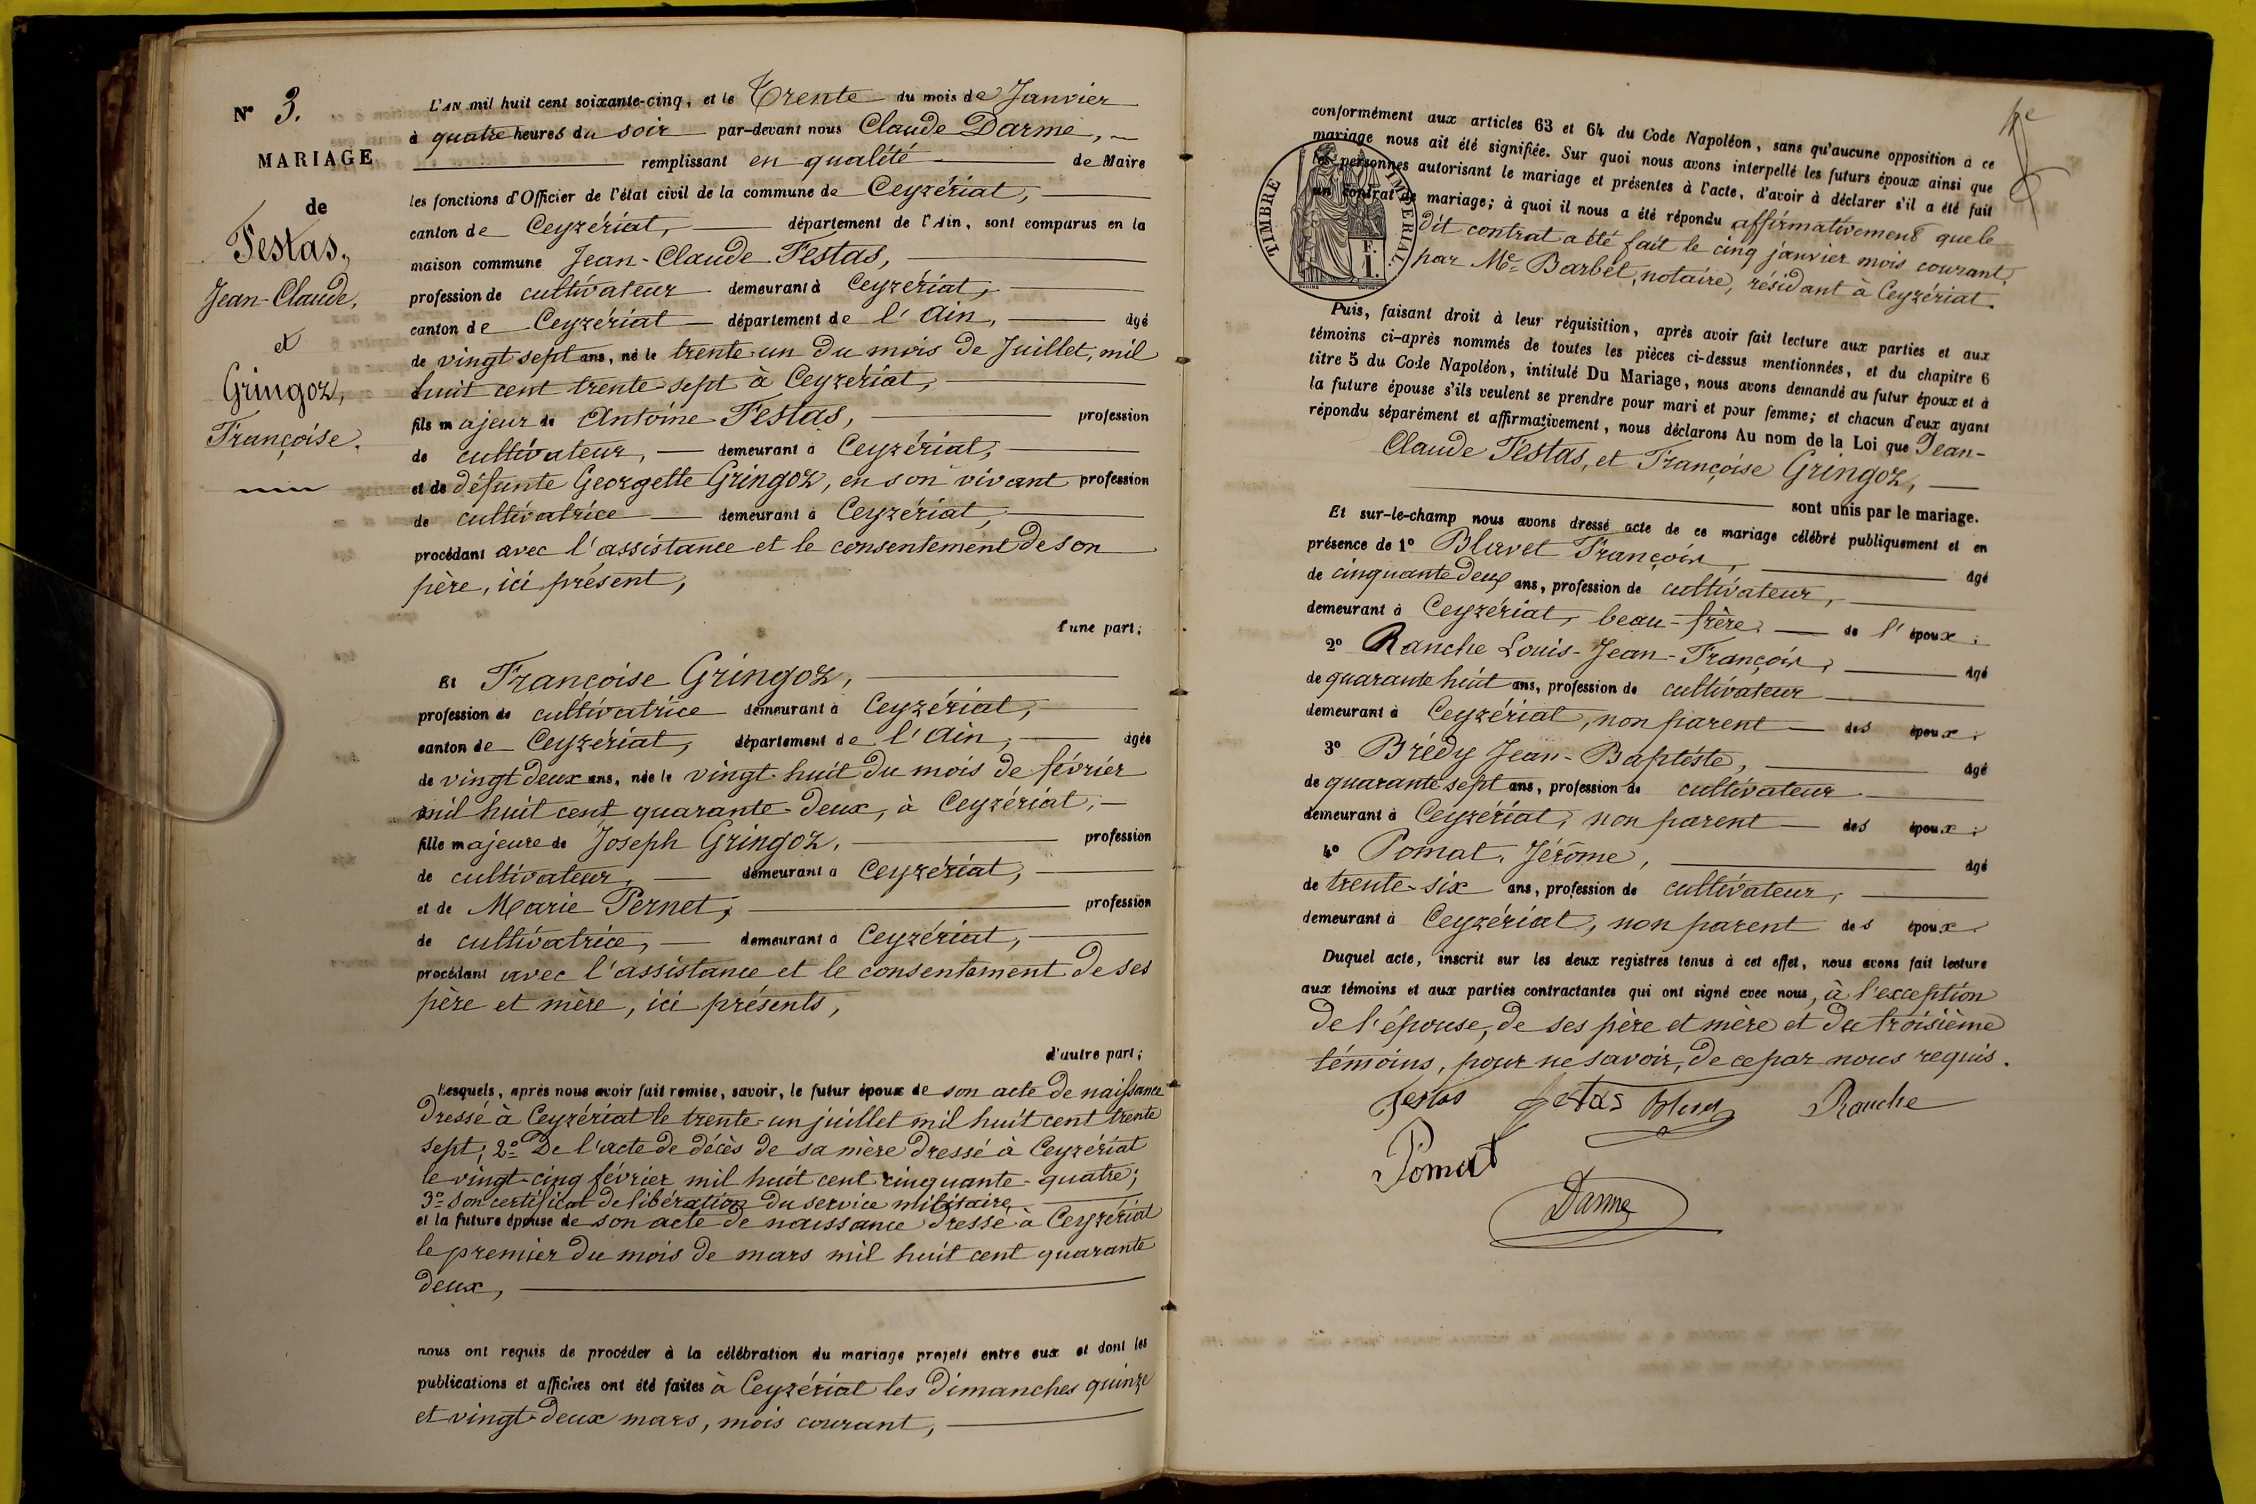 N° 3.
MARIAGE
de
Festas,
Jean-Claude,
et
Gringoz,
Françoise.
L'AN mil huit cent soixante-cinq, et le Trente du mois de Janvier
à quatre heures du soir par-devant nous Claude Darme,
remplissant en qualité de Maire
les fonctions d'Officier de l'état civil de la commune de Ceyzériat,
canton de Ceyzériat, département de l'Ain, sont comparus en la
maison commune Jean-Claude Festas,
profession de cultivateur demeurant à Ceyzériat,
canton de Ceyzériat département de l'Ain, âgé
de vingt sept ans, né le trente-un du mois de Juillet, mil
huit cent trente-sept à Ceyzériat,
fils majeur de Antoine Festas, profession
de cultivateur, demeurant à Ceyzériat,
et de défunte Georgette Gringoz, en son vivant profession
de cultivatrice demeurant à Ceyzériat,
procédant avec l'assistance et le consentement de son
père, ici présent,
d'une part;
Et Françoise Gringoz,
profession de cultivatrice demeurant à Ceyzériat,
canton de Ceyzériat, département de l'Ain, âgée
de vingt deux ans, née le vingt-huit du mois de février
mil huit cent quarante-deux, à Ceyzériat,
fille majeure de Joseph Gringoz, profession
de cultivateur, demeurant à Ceyzériat,
et de Marie Pernet, profession
de cultivatrice, demeurant à Ceyzériat,
procédant avec l'assistance et le consentement de ses
père et mère, ici présents,
d'autre part;
Lesquels, après nous avoir fait remise, savoir, le futur époux de son acte de naissance
dressé à Ceyzériat le trente-un juillet mil huit cent trente
sept; 2° De l'acte de décès de sa mère dressé à Ceyzériat
le vingt-cinq février mil huit cent cinquante-quatre;
3° Son certificat de libération du service militaire,
et la future épouse de son acte de naissance dressé à Ceyzériat
le premier du mois de mars mil huit cent quarante
deux,
nous ont requis de procéder à la célébration du mariage projeté entre eux et dont les
publications et affiches ont été faites à Ceyzériat les dimanches quinze
et vingt-deux mars, mois courant,
conformément aux articles 63 et 64 du Code Napoléon, sans qu'aucune opposition à ce
mariage nous ait été signifiée. Sur quoi nous avons interpellé les futurs époux ainsi que
les personnes autorisant le mariage et présentes à l'acte, d'avoir à déclarer s'il a été fait
un contrat de mariage; à quoi il nous a été répondu affirmativement que le
dit contrat a été fait le cinq janvier mois courant,
par Me Barbet, notaire, résidant à Ceyzériat.
TIMBRE IMPERIAL.
F. I.
Puis, faisant droit à leur réquisition, après avoir fait lecture aux parties et aux
témoins ci-après nommés de toutes les pièces ci-dessus mentionnées, et du chapitre 6
titre 5 du Code Napoléon, intitulé Du Mariage, nous avons demandé au futur époux et à
la future épouse s'ils veulent se prendre pour mari et pour femme; et chacun d'eux ayant
répondu séparément et affirmativement, nous déclarons Au nom de la Loi que Jean-
Claude Festas, et Françoise Gringoz,
sont unis par le mariage.
Et sur-le-champ nous avons dressé acte de ce mariage célébré publiquement et en
présence de 1° Blavet François, âgé
de cinquante deux ans, profession de cultivateur,
demeurant à Ceyzériat, beau-frère de l'époux;
2° Ranche Louis-Jean-François, âgé
de quarante huit ans, profession de cultivateur
demeurant à Ceyzériat, non parent des époux;
3° Brédy Jean-Baptiste, âgé
de quarante sept ans, profession de cultivateur
demeurant à Ceyzériat, non parent des époux;
4° Pomat, Jérôme, âgé
de trente-six ans, profession de cultivateur,
demeurant à Ceyzériat, non parent des époux
Duquel acte, inscrit sur les deux registres tenus à cet effet, nous avons fait lecture
aux témoins et aux parties contractantes qui ont signé avec nous, à l'exception
de l'épouse, de ses père et mère et du troisième
témoins, pour ne savoir, de ce par nous requis.
Festas Festas Blavet Ranche
Pomat
Darme